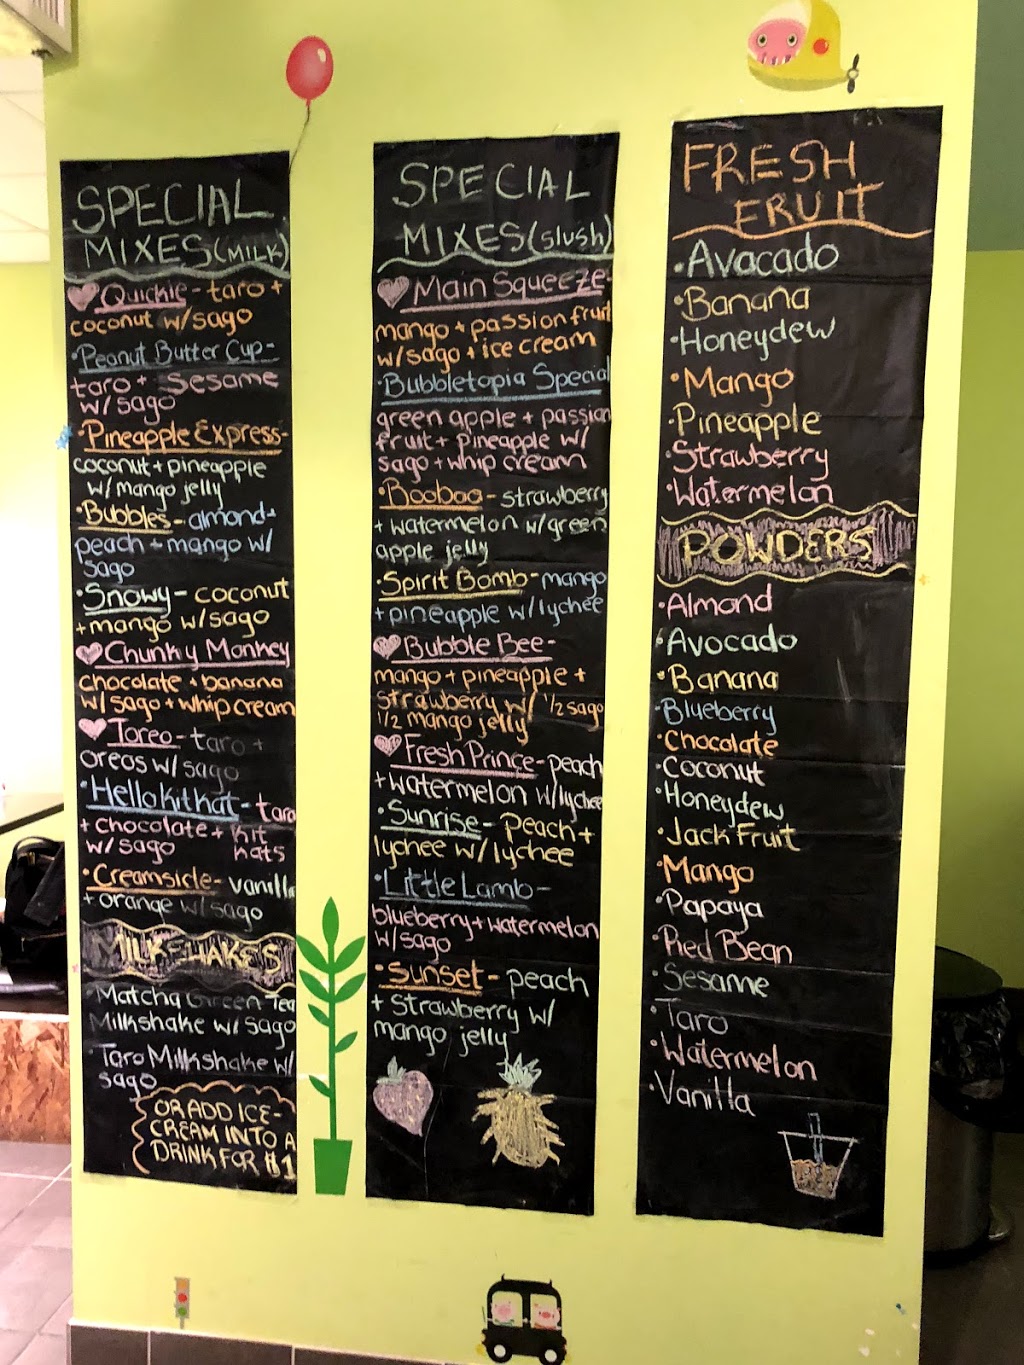 SPECIAL
MIXES (MILK)
Quickie - taro +
coconut w/sago
·Peanut Butter Cup-
taro + Sesame
w/sago
·Pineapple Express-
coconut + pineapple
w/mango jelly
·Bubbles - almond +
peach + mango w/
sago
·Snowy - coconut
+ mango w/sago
Chunky Monkey
chocolate + banana
w/sago + whip cream
Toreo - taro +
oreos w/ sago
·Hello Kit Kat - taro
+ chocolate + Kit
w/sago Kats
·Creamsicle - vanilla
+ orange w/sago
MILK-SHAKES
·Matcha Green Tea
Milkshake w/ sago
·Taro Milkshake w/
sago
OR ADD ICE-
CREAM INTO A
DRINK FOR $1
SPECIAL
MIXES (slush)
Main Squeeze-
mango + passion fruit
w/sago + ice cream
·Bubbletopia Special
green apple + passion
fruit + pineapple w/
sago + whip cream
·Booboo - strawberry
+ watermelon w/green
apple jelly
·Spirit Bomb - mango
+ pineapple w/lychee
Bubble Bee -
mango + pineapple +
strawberry w/ 1/2 sago
1/2 mango jelly
Fresh Prince - peach
+ watermelon w/lychee
·Sunrise - Peach +
lychee w/ lychee
·Little Lamb -
blueberry + watermelon
w/sago
·Sunset - peach
+ strawberry w/
mango jelly
FRESH
FRUIT
·Avacado
·Banana
·Honeydew
·Mango
·Pineapple
·Strawberry
·Watermelon
POWDERS
·Almond
·Avocado
·Banana
·Blueberry
·Chocolate
·Coconut
·Honeydew
·Jack Fruit
·Mango
·Papaya
·Red Bean
·Sesame
·Taro
·Watermelon
·Vanilla